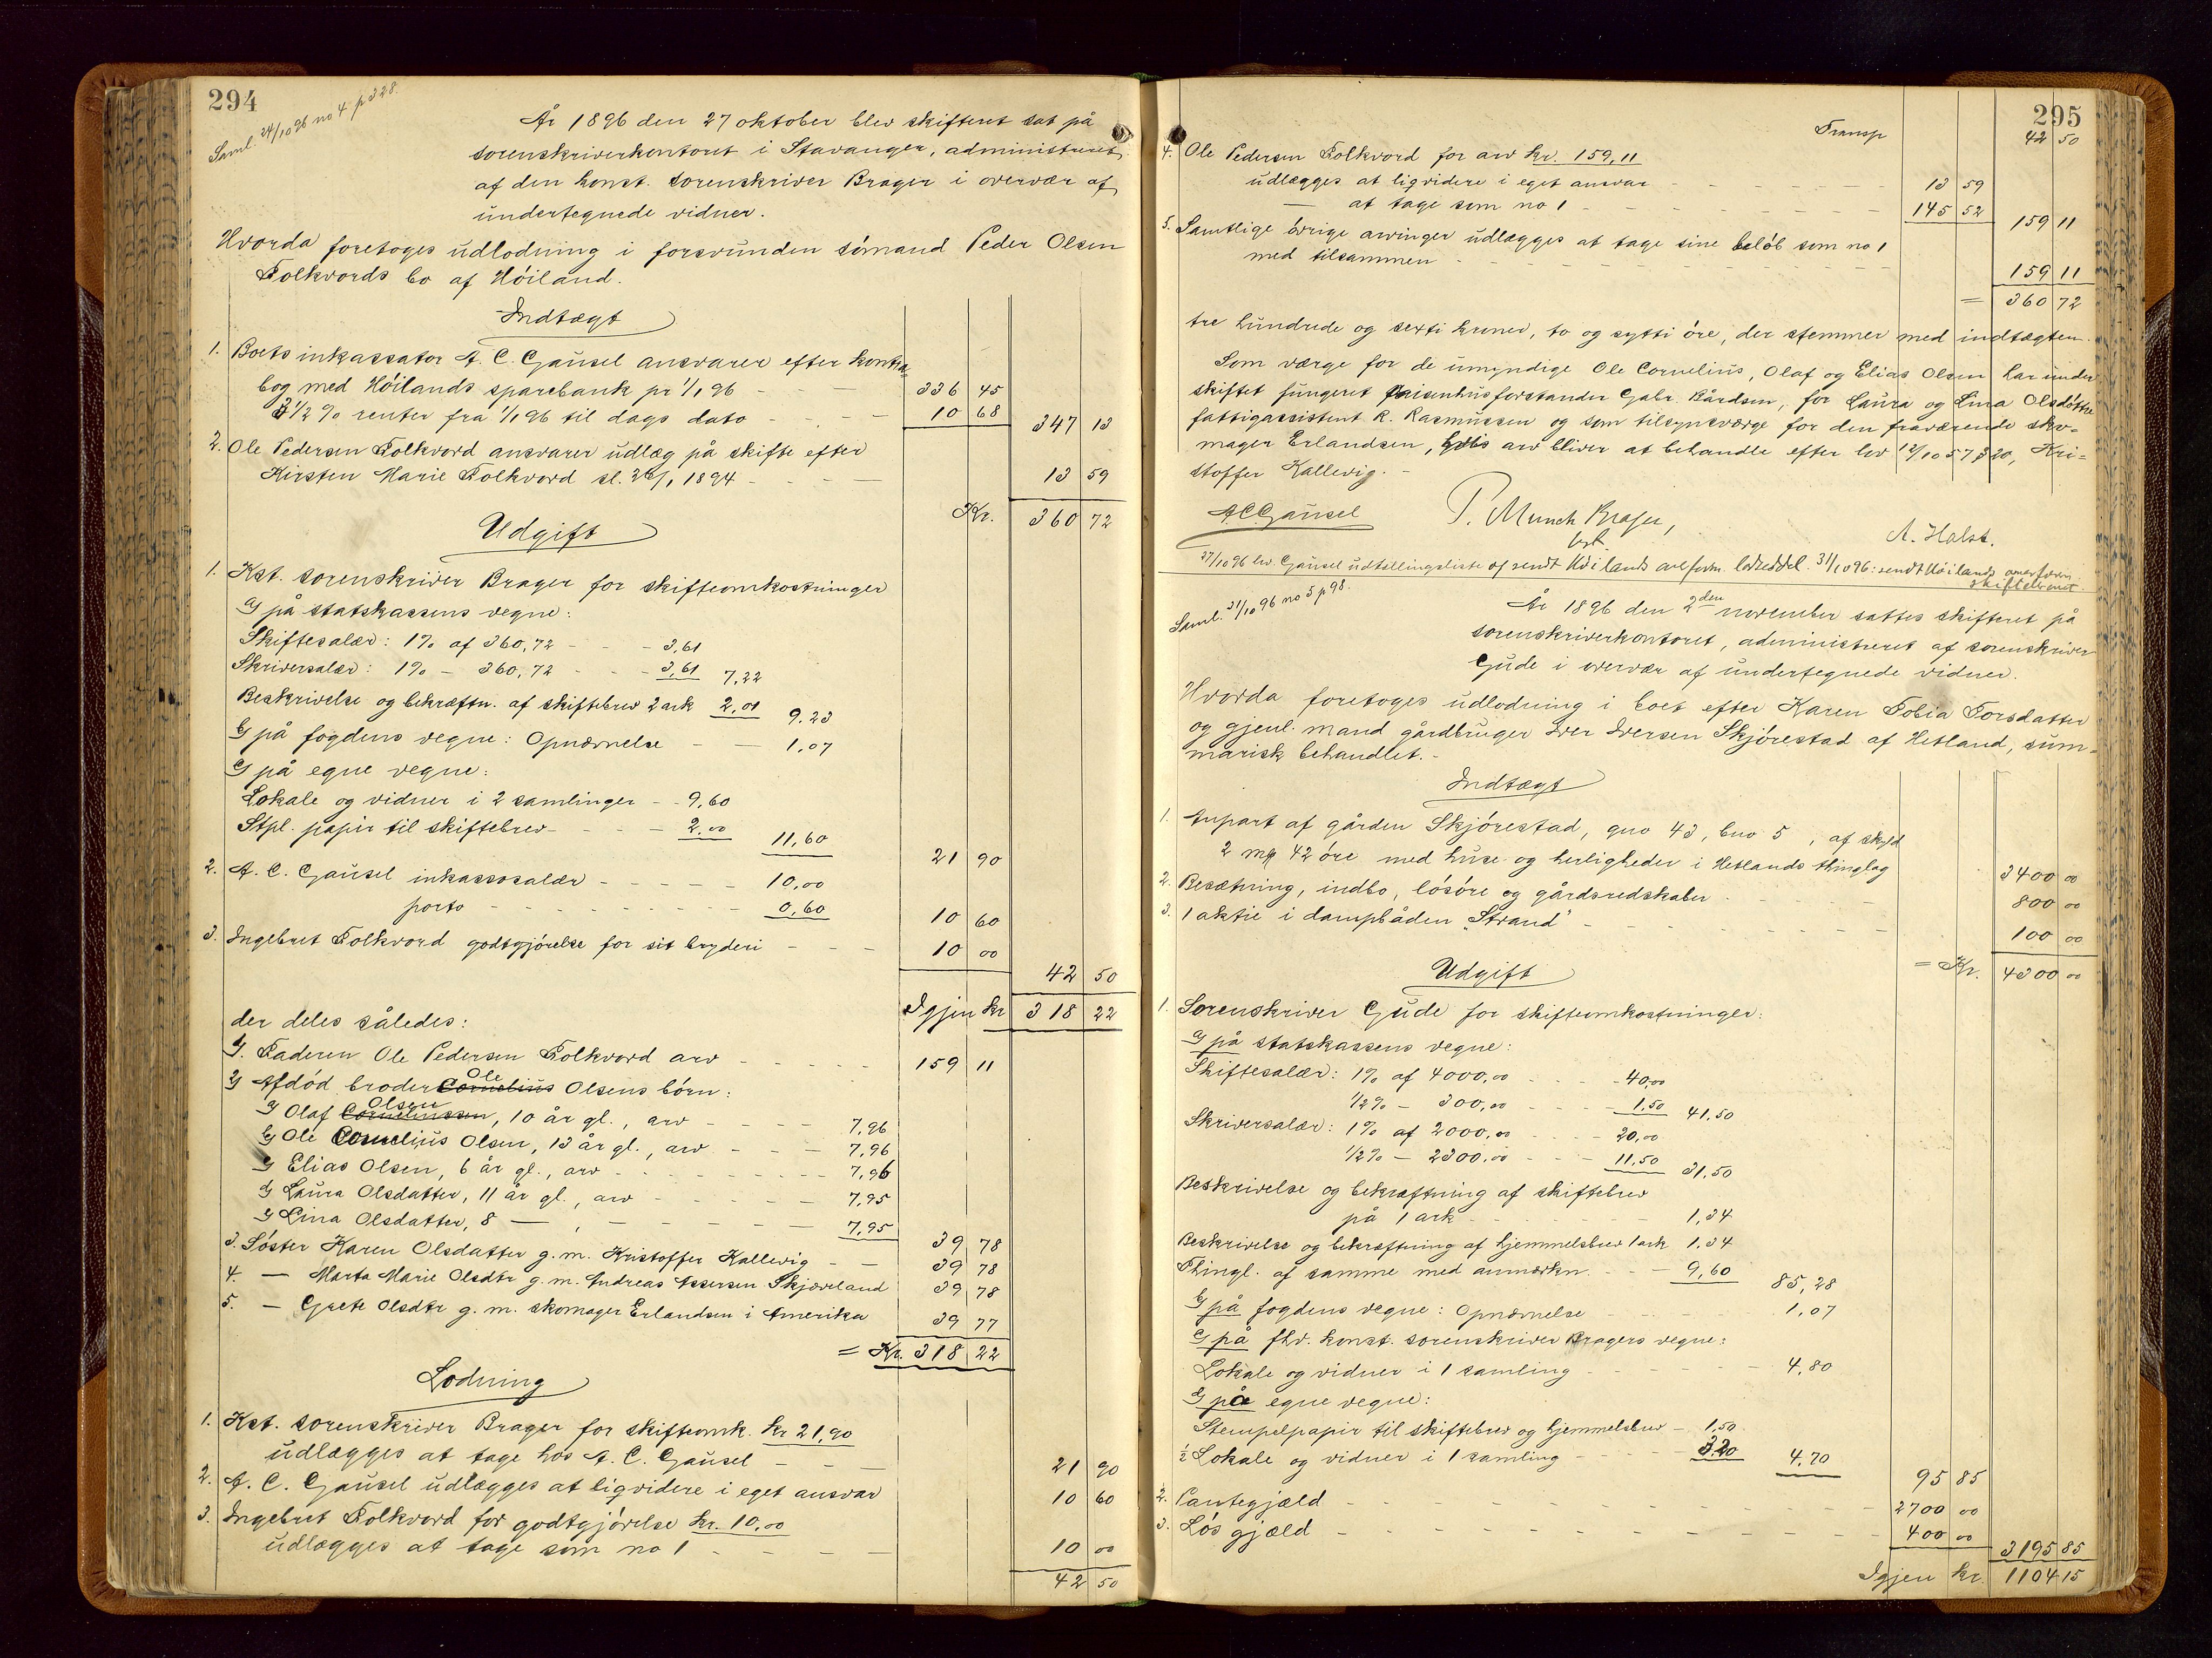 294
Saml. 24/10 96 no 4 p 328.
År 1896 den 27 oktober blev skifteret sat på
sorenskriverkontoret i Stavanger, administreret
af den konst. sorenskriver Brager i overvær af
undertegnede vidner.
Hvorda foretoges udlodning i forsvunden sömand Peder Olsen
Folkvords bo af Höiland.
Indtægt
1. Boets inkassator A. C. Gausel ansvarer efter kontra-
bog med Höilands sparebank pr 1/1 96 - - 336 45
3 1/2 % renter fra 1/1 96 til dags dato - - - 10 68 347 13
2. Ole Pedersen Folkvord ansvarer udlæg på skifte efter
Kirsten Marie Folkvord sl. 26/1 1894 - - - 13 59
Kr. 360 72
Udgift
1. Kst. sorenskriver Brager for skifteomkostninger
a) på statskassens vegne:
Skiftesalær: 1% af 360,72 - - - 3,61
Skriversalær: 1% - 360,72 - - 3,61 7,22
Beskrivelse og bekræftn. af skiftebrev 2 ark 2,01 9.23
b) på fogdens vegne: Opnævnelse - - 1,07
c) på egne vegne:
Lokale og vidner i 2 samlinger - - 9,60
Stpl. papir til skiftebrev - - - 2.00 11,60
21 90
2. A. C. Gausel inkassosalær - - - - - 10,00
porto - - - - - - - 0,60
10 60
3. Ingebret Folkvord godtgjörelse for sit bryderi - - - 10 00
42 50
Igjen kr 318 22
der deles således:
1. Faderen Ole Pedersen Folkvord arv - - - - 159 11
2) Afdöd broder Cornelius Ole Olsens börn:
a) Olaf Corneliussen Olsen, 10 år gl., arv - - - - 7,96
b) Ole Cornelius Olsen, 13 år gl., arv - - - 7,96
c) Elias Olsen, 6 år gl., arv - - - - - 7,96
d) Laura Olsdatter, 11 år gl., arv - - - - 7,95
e) Lina Olsdatter, 8 — , — - - - - 7,95
39 78
3. Söster Karen Olsdatter g. m. Kristoffer Kallevig - - 39 78
4. — Marta Marie Olsdtr g. m. Andreas Assersen Skjæveland 39 78
5. — Grete Olsdtr g. m. skomager Erlandsen i Amerika 39 77
= Kr. 318 22
Lodning
1. Kst. sorenskriver Brager for skifteomk. kr 21,90
udlægges at tage hos A. C. Gausel - - - 21 90
2. A. C. Gausel udlægges at liqvidere i eget ansvar 10 60
3. Ingebret Folkvord for godtgjörelse kr. 10,00
udlægges at tage som no 1 - - - 10 00
42 50
295
Transp 42 50
4. Ole Pedersen Folkvord for arv kr. 159,11
udlægges at liqvidere i eget ansvar - - - 13 59
— at tage som no 1 - - - - 145 52 159 11
5. Samtlige övrige arvinger udlægges at tage sine belöb som no 1
med tilsammen - - - - - 159 11
= 360 72
tre hundrede og sexti kroner, to og sytti öre, der stemmer med indtægten.
Som værge for de umyndige Ole Cornelius, Olaf og Elias Olsen har under
skiftet fungeret Vaisenhusforstander Gabr. Bårdsen, for Laura og Lina Olsdöttre
fattigassistent R. Rasmussen og som tilsynsværge for den fraværende sko-
mager Erlandsen, hvis arv bliver at behandle efter lov 12/10 57 § 20, Kri-
stoffer Kallevig. -
A C Gausel
P. Munch Brager,
kst.
A. Halst.
27/10 96 lev. Gausel udtællingsliste og sendt Höilands loseddel. 31/10 96: sendt Höilands
Saml. 31/10 96 no 5 p 98.
År 1896 den 2den november sattes skifteret på
sorenskriverkontoret, administreret af sorenskriver
Gude i overvær af undertegnede vidner.
Hvorda foretoges udlodning i boet efter Karen Tobia Torsdatter
og gjenl. mand gårdbruger Iver Iversen Skjörestad af Hetland, sum-
marisk behandlet. -
Indtægt
1. Anpart af gården Skjörestad, gno 43, bno 5, af skyld
2 mrk 42 öre med huse og herligheder i Hetlands thinglag 3400 00
2. Besætning, indbo, lösöre og gårdsredskaber - - - 800 00
3. 1 aktie i dampbåden "Strand" - - - - - 100 00
= Kr. 4300 00
Udgift
1. Sorenskriver Gude for skifteomkostninger:
a) på statskassens vegne:
Skiftesalær: 1% af 4000,00 - - - - 40,00
1/2 % - 300,00 - - - - 1,50 41,50
Skriversalær: 1% af 2000,00 - - - - 20,00
1/2 % - 2300,00 - - - 11,50 31,50
Beskrivelse og bekræftning af skiftebrev
på 1 ark - - - - - 1,34
Beskrivelse og bekræftning af hjemmelsbrev 1 ark 1.34
Thingl. af samme med anmærkn. - - 9,60 85,28
b) på fogdens vegne: Opnævnelse - - - 1,07
c) på fhv. konst. sorenskriver Bragers vegne:
Lokale og vidner i 1 samling - - - - 4,80
d) på egne vegne:
Stempelpapir til skiftebrev og hjemmelsbrev - 1,50
1/2 Lokale og vidner i 1 samling - - - 3.20 4,70
95 85
2. Pantegjæld - - - - - - 2700 00
3. Lös gjæld - - - - - - 400 00
3195 85
Igjen kr. 1104 15